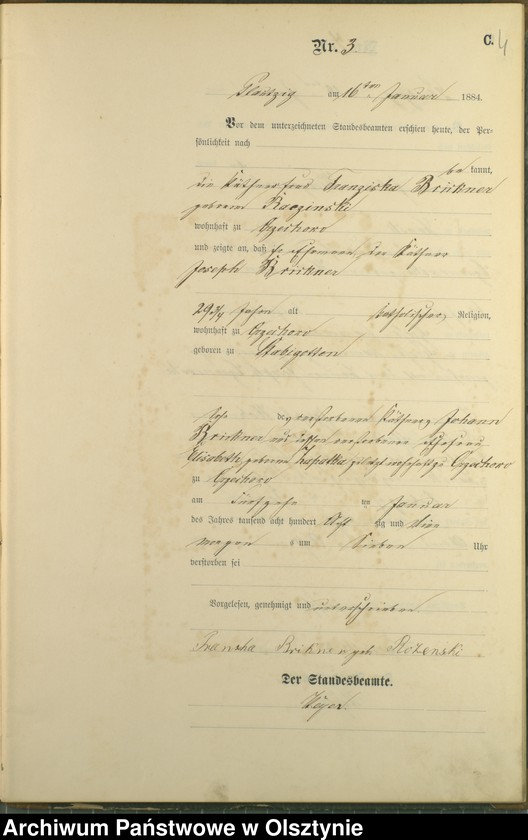 C. 4
Nr. 3
Plautzig am 16ten Januar 1884.
Vor dem unterzeichneten Standesbeamten erschien heute, der Per-
sönlichkeit nach
be kannt,
die Käthnerfrau Franziska Brickner
geborene Raczinski
wohnhaft zu
und zeigte an, daß ihr Ehemann der Käthner
Joseph Brickner
29 3/4 Jahre alt katholischer Religion,
wohnhaft zu
geboren zu Stabigotten
Sohn des verstorbenen Käthners Johann
Brickner und dessen verstorbene Ehefrau
Elisabeth geborene zuletzt wohnhaft
zu
am ten Januar
des Jahres tausend acht hundert acht zig und vier
morgen s um sieben Uhr
verstorben sei
Vorgelesen, genehmigt und unterschrieben
geb.
Der Standesbeamte.